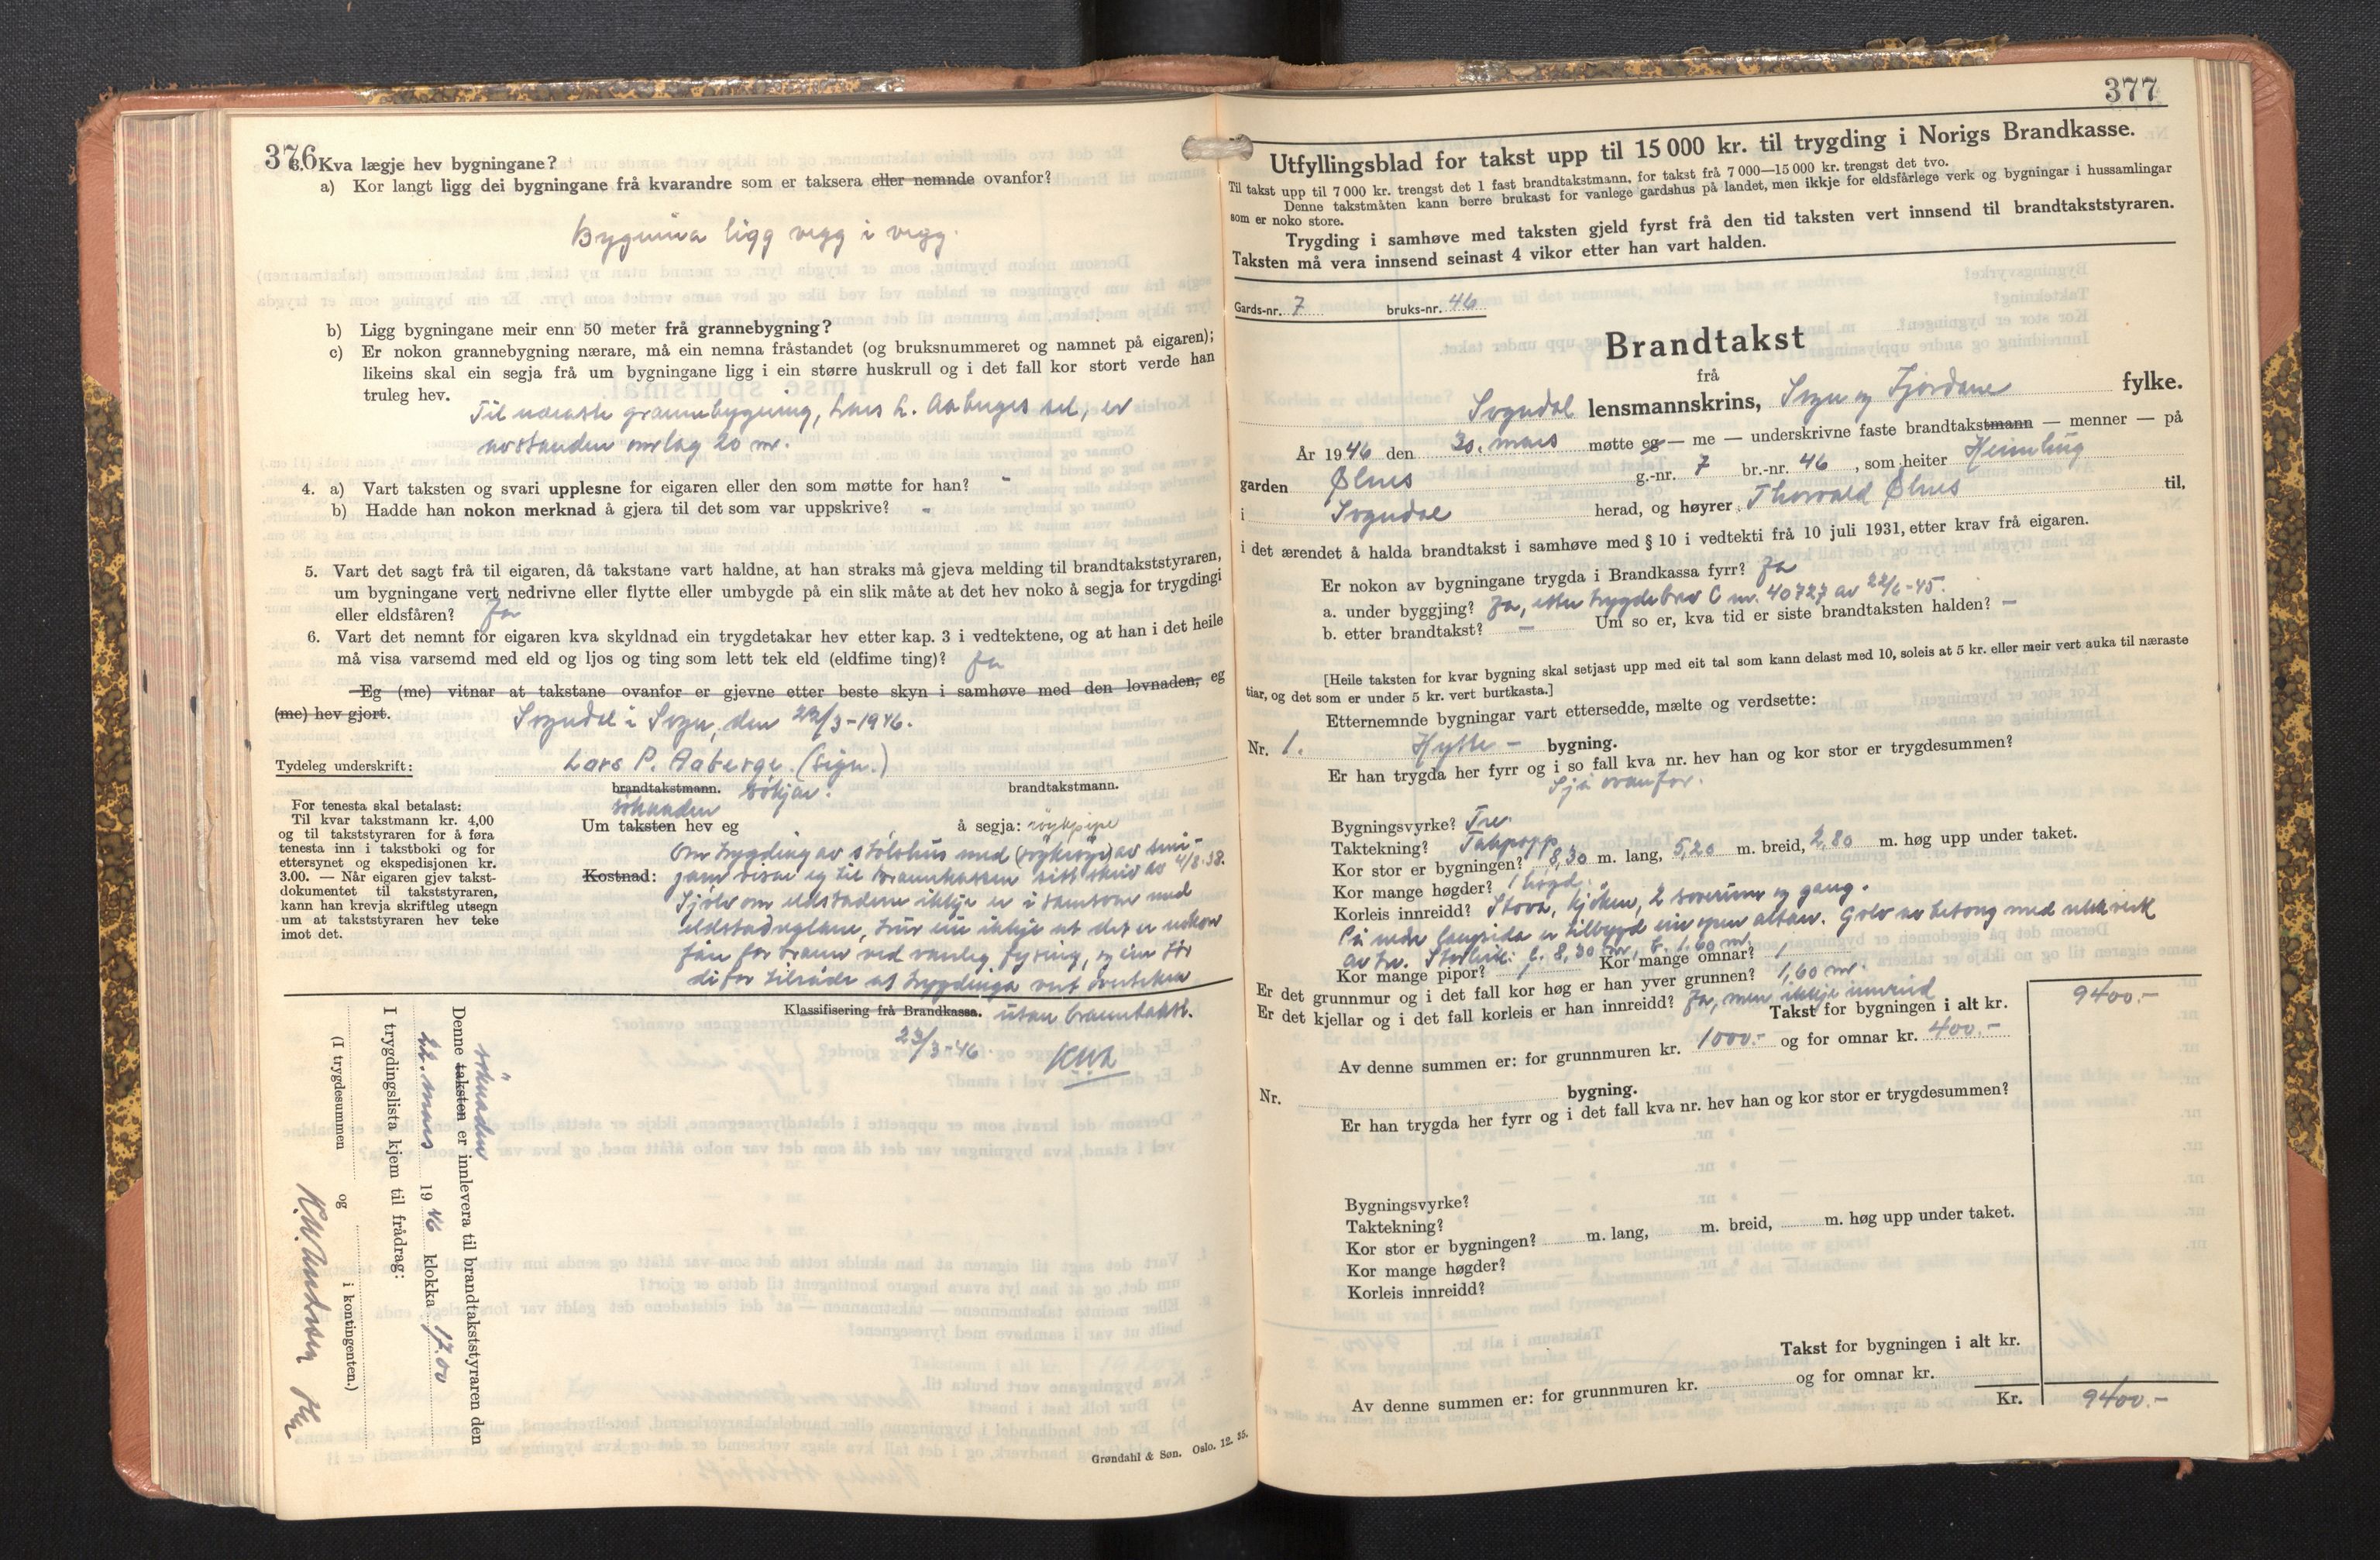 376
3. Kva lægje hev bygningane?
a) Kor langt ligg dei bygningane frå kvarandre som er taksera eller nemnde ovanfor?
Bygnina ligg vegg i vegg.
b) Ligg bygningane meir enn 50 meter frå grannebygning?
c) Er nokon grannebygning nærare, må ein nemna fråstandet (og bruksnummeret og namnet på eigaren);
likeins skal ein segja frå um bygningane ligg i ein større huskrull og i det fall kor stort verde han
truleg hev.
Til næraste grannebygning, Lars L. Aaberges sel, er
avstanden omlag 20 m.
4. a) Vart taksten og svari upplesne for eigaren eller den som møtte for han? -
b) Hadde han nokon merknad å gjera til det som var uppskrive? -
5. Vart det sagt frå til eigaren, då takstane vart haldne, at han straks må gjeva melding til brandtakststyraren,
um bygningane vert nedrivne eller flytte eller umbygde på ein slik måte at det hev noko å segja for trygdingi
eller eldsfåren? Ja
6. Vart det nemnt for eigaren kva skyldnad ein trygdetakar hev etter kap. 3 i vedtektene, og at han i det heile
må visa varsemd med eld og ljos og ting som lett tek eld (eldfime ting)? Ja
Eg (me) vitnar at takstane ovanfor er gjevne etter beste skyn i samhøve med den lovnaden, eg
(me) hev gjort.
Sogndal i Sogn, den 22/3-1946.
Tydeleg underskrift: Lars P. Aaberge. (sign.)
brandtakstmann. søkjar. brandtakstmann.
For tenesta skal betalast:
Til kvar takstmann kr. 4,00
og til takststyraren for å føra
tenesta inn i takstboki og for
ettersynet og ekspedisjonen kr.
3.00. — Når eigaren gjev takst-
dokumentet til takststyraren,
kann han krevja skriftleg utsegn
um at takststyraren hev teke
imot det.
søknaden
Um taksten hev eg å segja: røykpipe
Om trygding av stølshus med (røykrøyr) av
Kostnad: jarn viser eg til Brannkassen sitt skriv av 4/8-38.
Sjølv om eldstadene ikkje er i samsvar med
eldstadreglane, trur ein ikkje at det er nokon
fåre for brann ved vanleg fyring, og ein får
difor tilråde at trygdinga vert
Klassifisering frå Brandkassa. utan branntakst.
23/3-46. KWA
Denne taksten er innlevera til brandtakststyraren den
søknaden
22. mars 1946 klokka 17.00
I trygdingslista kjem til frådrag:
(I trygdesummen og i kontingenten.)
Grøndahl & Søn. Oslo. 12. 35.
377
Utfyllingsblad for takst upp til 15 000 kr. til trygding i Norigs Brandkasse.
Til takst upp til 7 000 kr. trengst det 1 fast brandtakstmann, for takst frå 7 000—15 000 kr. trengst det tvo.
Denne takstmåten kann berre brukast for vanlege gardshus på landet, men ikkje for eldsfårlege verk og bygningar i hussamlingar
som er noko store.
Trygding i samhøve med taksten gjeld fyrst frå den tid taksten vert innsend til brandtakststyraren.
Taksten må vera innsend seinast 4 vikor etter han vart halden.
Gards-nr. 7 bruks-nr. 46
Brandtakst
frå
Sogndal lensmannskrins, Sogn og Fjordane fylke.
År 1946 den 20. mars møtte eg — me — underskrivne faste brandtakstmann — menner — på
garden Ølnes g.-nr. 7 br.-nr. 46, som heiter Heimhug
i Sogndal herad, og høyrer Thorvald Ølnes til,
i det ærendet å halda brandtakst i samhøve med § 10 i vedtekti frå 10 juli 1931, etter krav frå eigaren.
Er nokon av bygningane trygda i Brandkassa fyrr? Ja
a. under byggjing? Ja, etter trygdebrev C nr. 40727 av 22/6-45.
b. etter brandtakst? — Um so er, kva tid er siste brandtaksten halden? —
[Heile taksten for kvar bygning skal setjast upp med eit tal som kann delast med 10, soleis at 5 kr. eller meir vert auka til næraste
tiar, og det som er under 5 kr. vert burtkasta.]
Etternemnde bygningar vart ettersedde, mælte og verdsette:
Nr. 1. Hytte - bygning.
Er han trygda her fyrr og i so fall kva nr. hev han og kor stor er trygdesummen?
Sjå ovanfor.
Bygningsvyrke? Tre.
Taktekning? Takpapp
Kor stor er bygningen? 8,30 m. lang, 5,20 m. breid, 2,80 m. høg upp under taket.
Kor mange høgder? 1 høgd.
Korleis innreidd? Stova, kjøken, 2 soverum og gang.
På nedre langsida er tilbygd ein open altan. Golv av betong med rekkverk
av tre. Storleik: l. 8,30 m, b. 1,60 m.
Kor mange pipor? 1 Kor mange omnar? 1
Er det grunnmur og i det fall kor høg er han yver grunnen? 1,60 m.
Er det kjellar og i det fall korleis er han innreidd? Ja, men ikkje innreid
Takst for bygningen i alt kr. 9400.-
Av denne summen er: for grunnmuren kr. 1000.- og for omnar kr. 400.-
Nr. bygning.
Er han trygda her fyrr og i det fall kva nr. hev han og kor stor er trygdesummen?
Bygningsvyrke?
Taktekning?
Kor stor er bygningen? m. lang, m. breid, m. høg upp under taket.
Kor mange høgder?
Korleis innreidd?
Takst for bygningen i alt kr.
Av denne summen er: for grunnmuren kr. og for omnar kr.
Kr. 9400.-